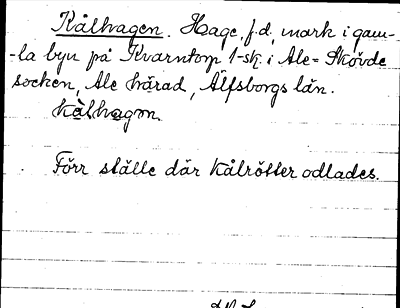 Kålhagen. Hage, f.d. mark i gam-
-la byn på Kvarntorp 1-sk. i Ale-Skövde
socken, Ale härad, Älfsborgs län.
kålhagen.
Förr ställe där kålrötter odlades.